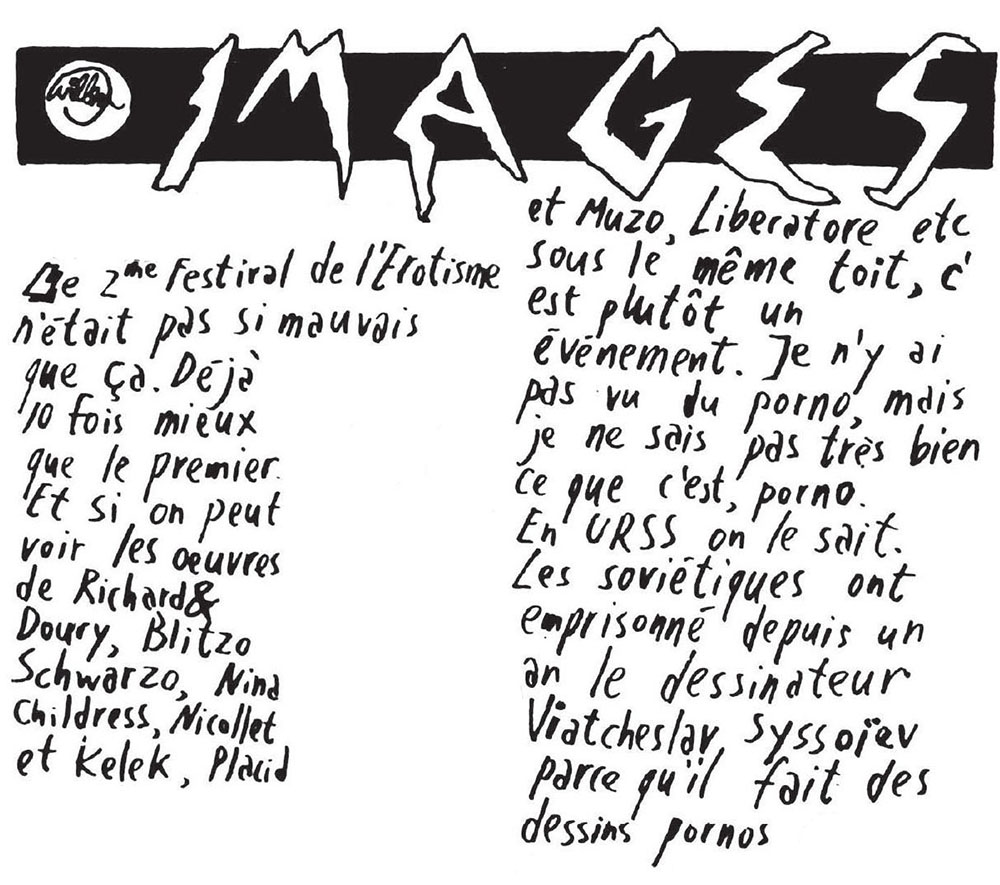 Willem
IMAGES
Le 2me Festival de l'Erotisme
n'était pas si mauvais
que ça. Déjà
10 fois mieux
que le premier.
Et si on peut
voir les oeuvres
de Richard &
Doury, Blitzo
Schwarzo, Nina
Childress, Nicollet
et Kelek, Placid
et Muzo, Liberatore etc
sous le même toit, c'
est plutôt un
événement. Je n'y ai
pas vu du porno, mais
je ne sais pas très bien
ce que c'est, porno.
En URSS on le sait.
Les soviétiques ont
emprisonné depuis un
an le dessinateur
Viatcheslav, Syssoïev
parce qu'il fait des
dessins pornos